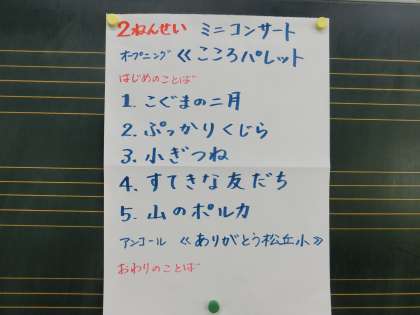 2ねんせい ミニコンサート
オープニング 《こころパレット
はじめのことば
1. こぐまの二月
2. ぷっかりくじら
3. 小ぎつね
4. すてきな友だち
5. 山のポルカ
アンコール 《ありがとう松丘小》
おわりのことば